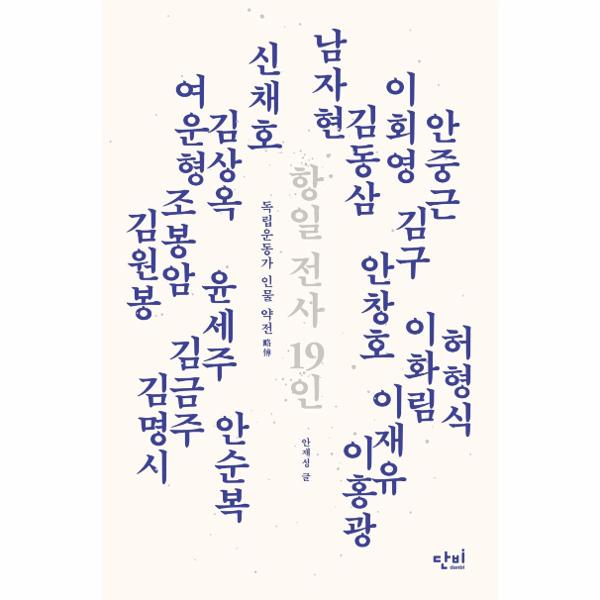 안중근
이회영
남자현
김동삼
김구
안창호
허형식
이화림
이재유
이홍광
항일 전사 19인
독립운동가 인물 약전 略傳
안재성 글
신채호
여운형
김상옥
조봉암
김원봉
윤세주
김금주
김명시
안순복
단비
danbi